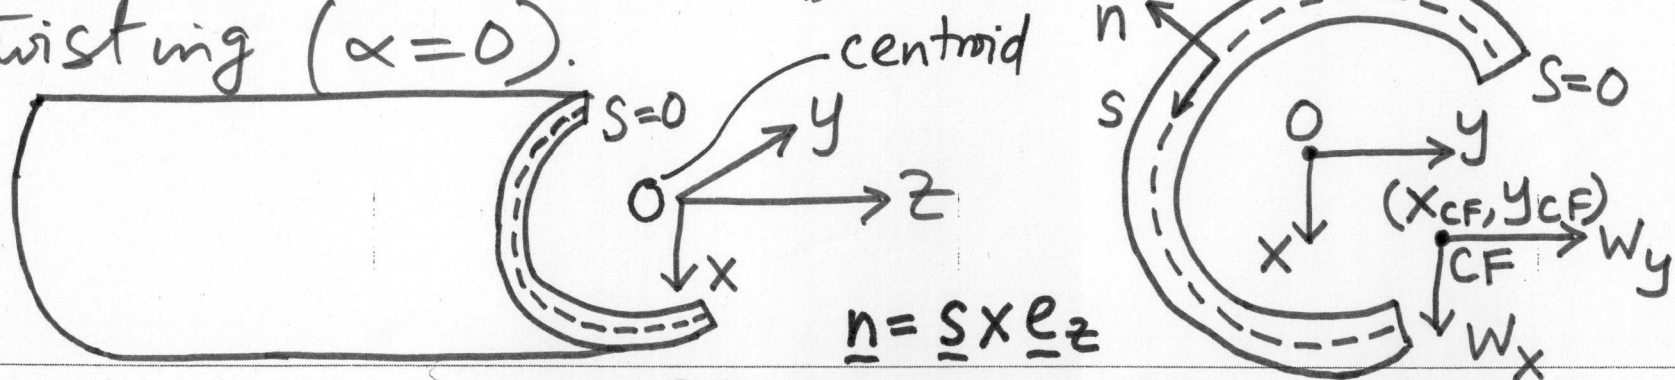 twisting (α=0).
centroid
S=0
y
O
Z
X
n = s x e_z
n
S=0
s
O
y
X
(X_CF, Y_CF)
CF
W_y
W_x